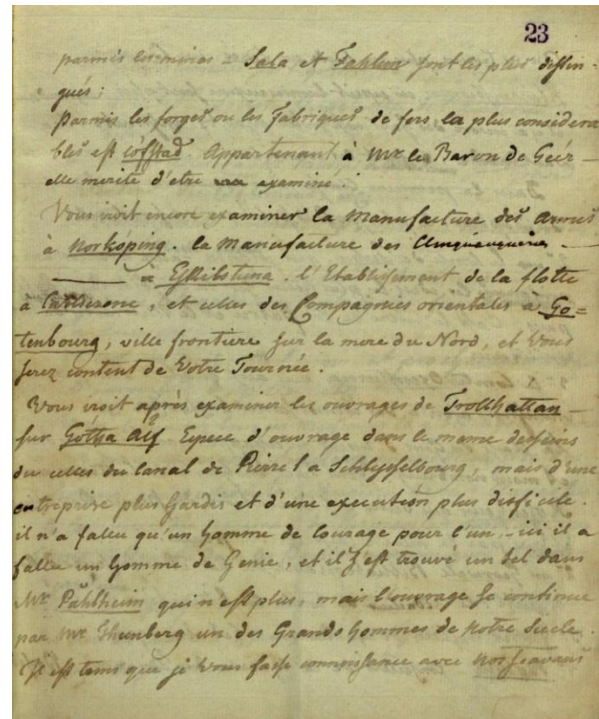 23
parmis les mines - Sala et Fahlun sont les plus distin-
gués:
Parmis les forges ou les Fabriques de fers la plus considera
bles est Löfstad. Appartenant à Mr le Baron de Geér -
elle merite d'etre examiné.
Vous iroit encore examiner la Manufacture des Armes
à Norköping. la Manufacture des
à Eskilstuna. l'Etablissement de la flotte
à , et celles des Compagnies orientales à Go=
tenbourg, ville frontiere sur la mere du Nord, et Vous
serez content de Votre Tournée.
Vous iroit après examiner les ouvrages de Trollhattan -
sur Gotha Elf. Espece d'ouvrage dans le meme desseins
du celles du Canal de Pierre I a Schlysselbourg, mais d'une
entreprise plus hardis et d'une execution plus dificile.
il n'a fallu qu'un homme de Courage pour l'un - ici il a
fallu un homme de Genie, et il s'est trouvé un tel dans
Mr qui n'est plus, mais l'ouvrage se continue
par Mr Thunberg un des Grands hommes de Notre Siecle.
Il est tems que je Vous fasse connoissance avec Nos Scavans